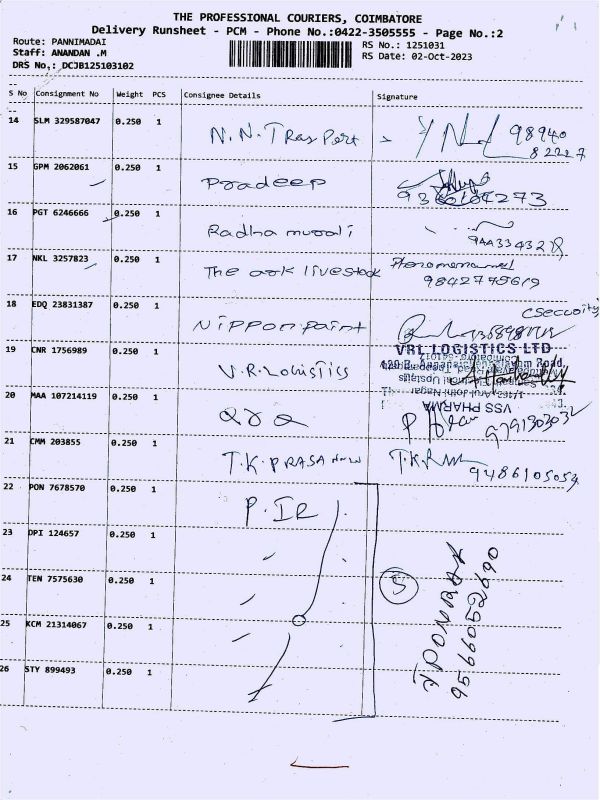 THE PROFESSIONAL COURIERS, COIMBATORE
Delivery Runsheet - PCM - Phone No.:0422-3505555 - Page No.:2
Route: PANNIMADAI
RS No.: 1251031
Staff: ANANDAN .M
RS Date: 02-Oct-2023
DRS No,: DCJB125103102
S No Consignment No Weight PCS Consignee Details Signature
14 SLM 329587047 0.250 1 N.N. 98940
82227
15 GPM 2062061 0.250 1 Pradeep
16 PGT 6246666 0.250 1 Radha murali
17 NKL 3257823 0.250 1 The ark livestock
18 EDQ 23831387 0.250 1 Nippon paint
VRL LOGISTICS LTD
19 CNR 1756989 0.250 1 V.R. Logistics
VSS PHARMA
20 MAA 107214119 0.250 1
21 CMM 203855 0.250 1 T.K. PRASA 9486105054
22 PON 7678570 0.250 1 P. IR
23 DPI 124657 0.250 1
24 TEN 7575630 0.250 1 5
25 KCM 21314067 0.250 1
26 STY 899493 0.250 1
9566052690